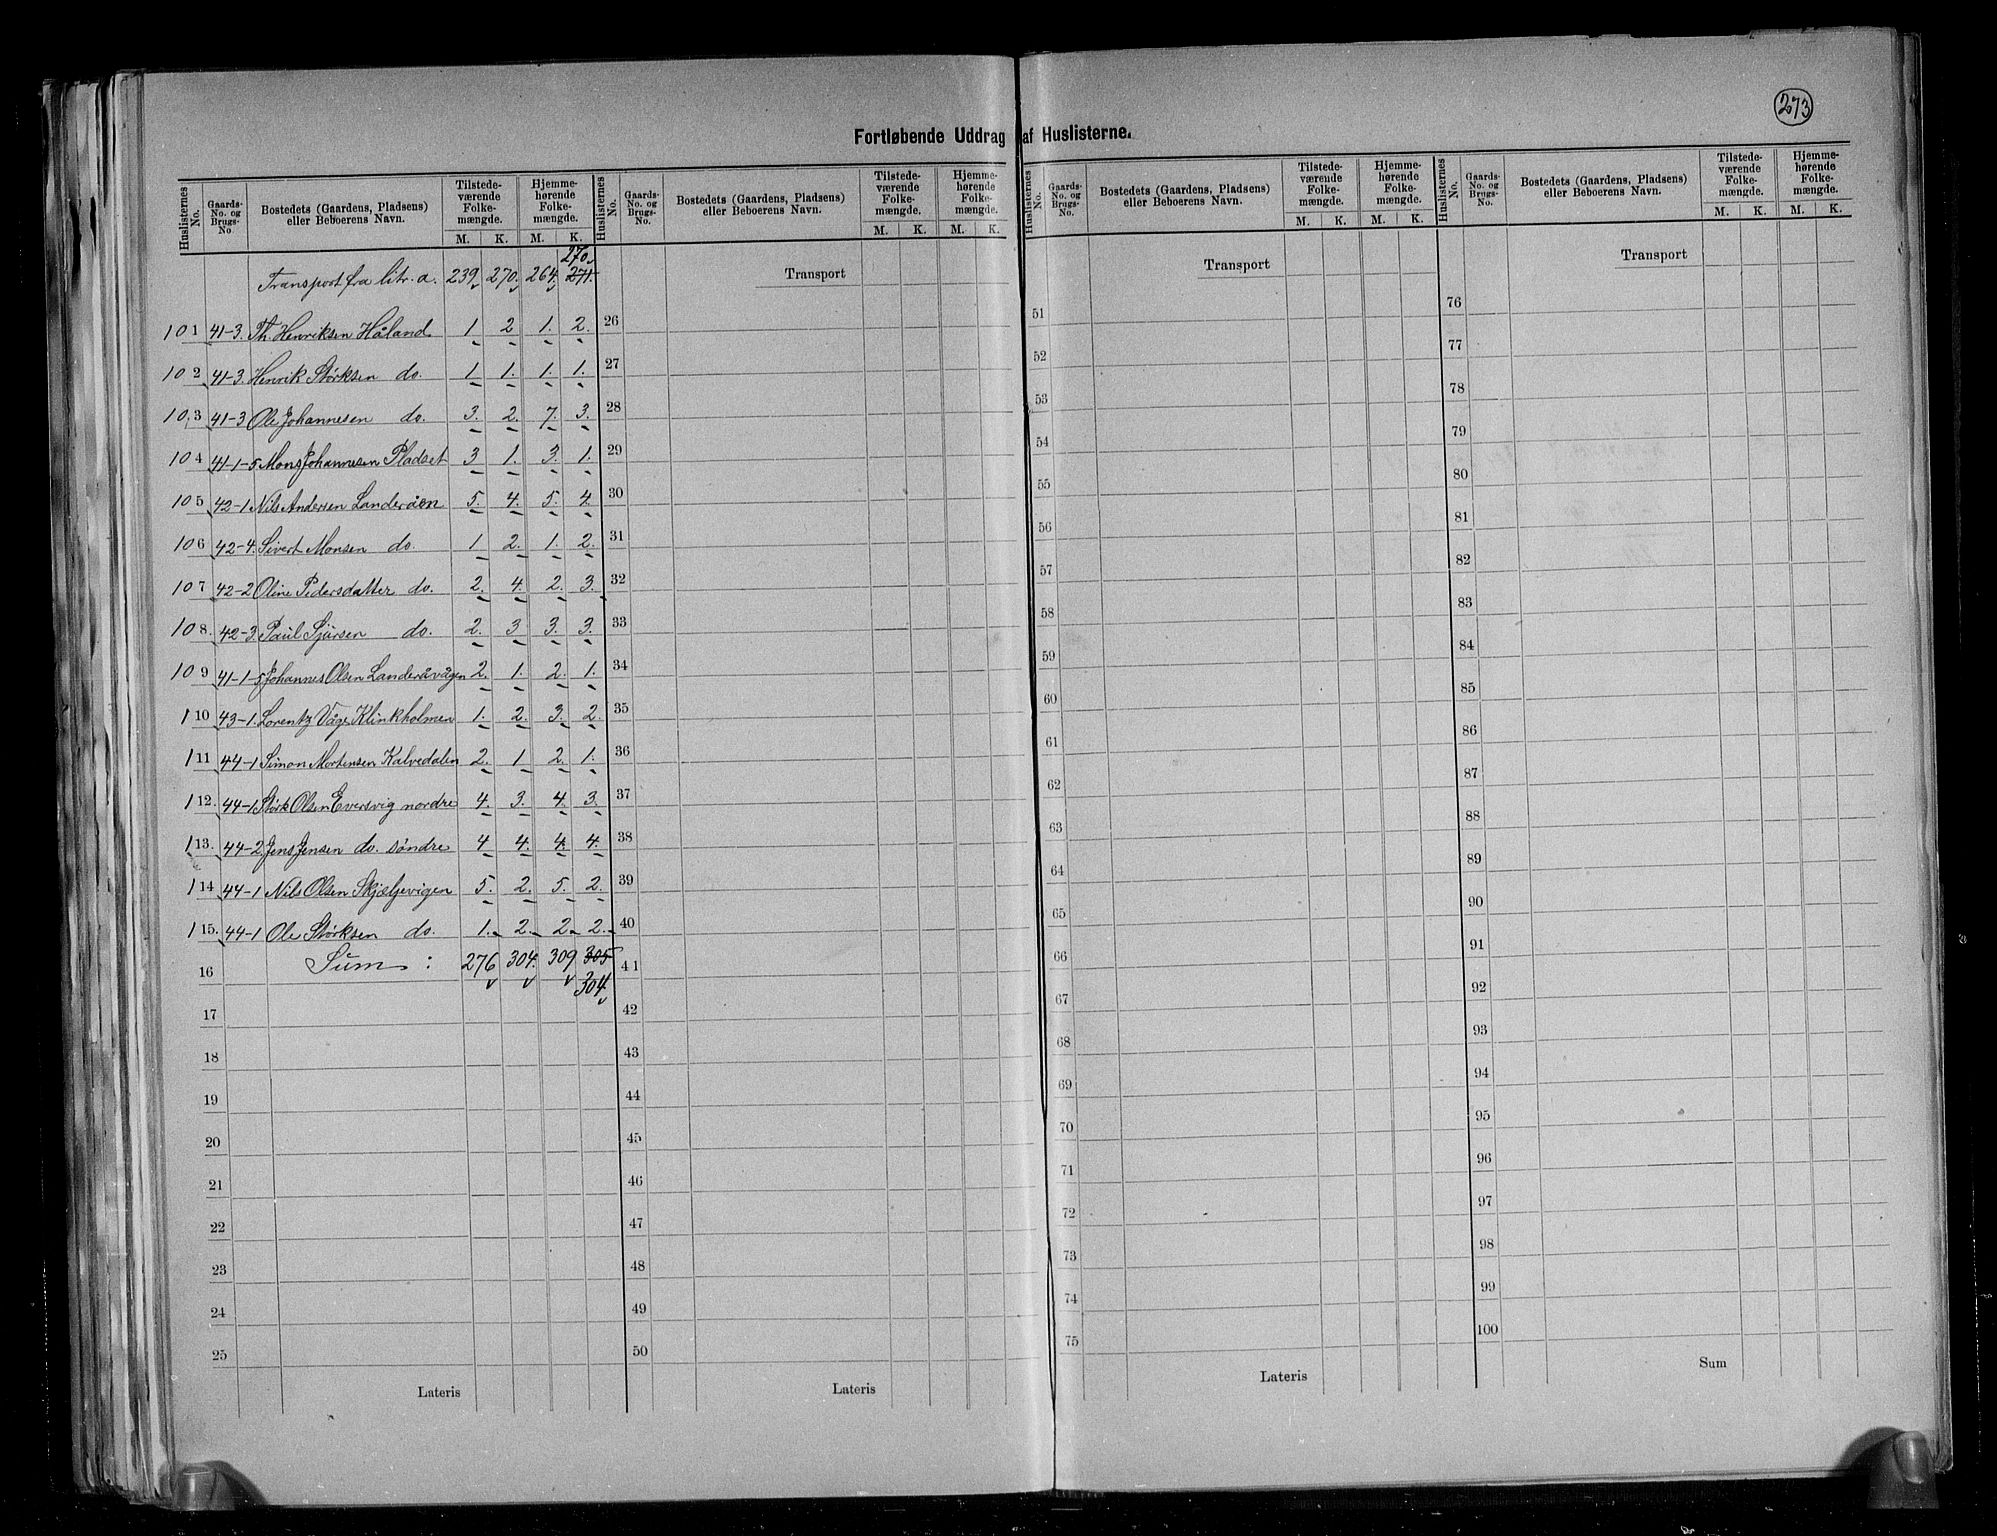 273
Fortløbende Uddrag af Huslisterne.
Huslisternes No. Gaards-No. og Brugs-No. Bostedets (Gaardens, Pladsens) eller Beboerens Navn. Tilstede-værende Folke-mængde. M. K. Hjemme-hørende Folke-mængde. M. K.
270.
Transport fra litr. a. 239 270. 264. 271.
101 41-3. Th. Henriksen Håland 1 2 1. 2.
102 41-3. Henrik Størksen do. 1 1. 1. 1.
103 41-3 Ole Johannesen do. 3. 2. 7. 3.
104 41-1-5 Mons Johannesen Pladset 3 1. 3. 1.
105 42-1 Nils Andersen Landeråen 5. 4. 5. 4.
106 42-4. Sivert Monsen do. 1. 2. 1. 2.
107 42-2 Oline Pedersdatter do. 2. 4. 2. 3.
108. 42-3. Paul Sjursen do. 2. 3 3. 3.
109 41-1-5 Johannes Olsen Landeråvågen 2. 1. 2. 1.
110 43-1. Lorentz Våge Klinkholmen 1. 2. 3. 2.
111 44-1 Simon Mortensen Kalvedalen 2. 1 2. 1.
112. 44-1 Størk Olsen Eversvig nordre 4. 3. 4. 3.
113. 44-2 Jens Jensen do. söndre 4 4. 4. 4.
114 44-1 Nils Olsen Skjæljevigen 5. 2. 5. 2.
115. 44-1 Ole Størksen do. 1. 2. 2 2.
16 Sum : 276 304. 309 305
304.
17
18
19
20
21
22
23
24
25
Lateris
Huslisternes No. Gaards-No. og Brugs-No. Bostedets (Gaardens, Pladsens) eller Beboerens Navn. Tilstede-værende Folke-mængde. M. K. Hjemme-hørende Folke-mængde. M. K.
Transport
26
27
28
29
30
31
32
33
34
35
36
37
38
39
40
41
42
43
44
45
46
47
48
49
50
Lateris
Huslisternes No. Gaards-No. og Brugs-No. Bostedets (Gaardens, Pladsens) eller Beboerens Navn. Tilstede-værende Folke-mængde. M. K. Hjemme-hørende Folke-mængde. M. K.
Transport
51
52
53
54
55
56
57
58
59
60
61
62
63
64
65
66
67
68
69
70
71
72
73
74
75
Lateris
Huslisternes No. Gaards-No. og Brugs-No. Bostedets (Gaardens, Pladsens) eller Beboerens Navn. Tilstede-værende Folke-mængde. M. K. Hjemme-hørende Folke-mængde. M. K.
Transport
76
77
78
79
80
81
82
83
84
85
86
87
88
89
90
91
92
93
94
95
96
97
98
99
100
Sum